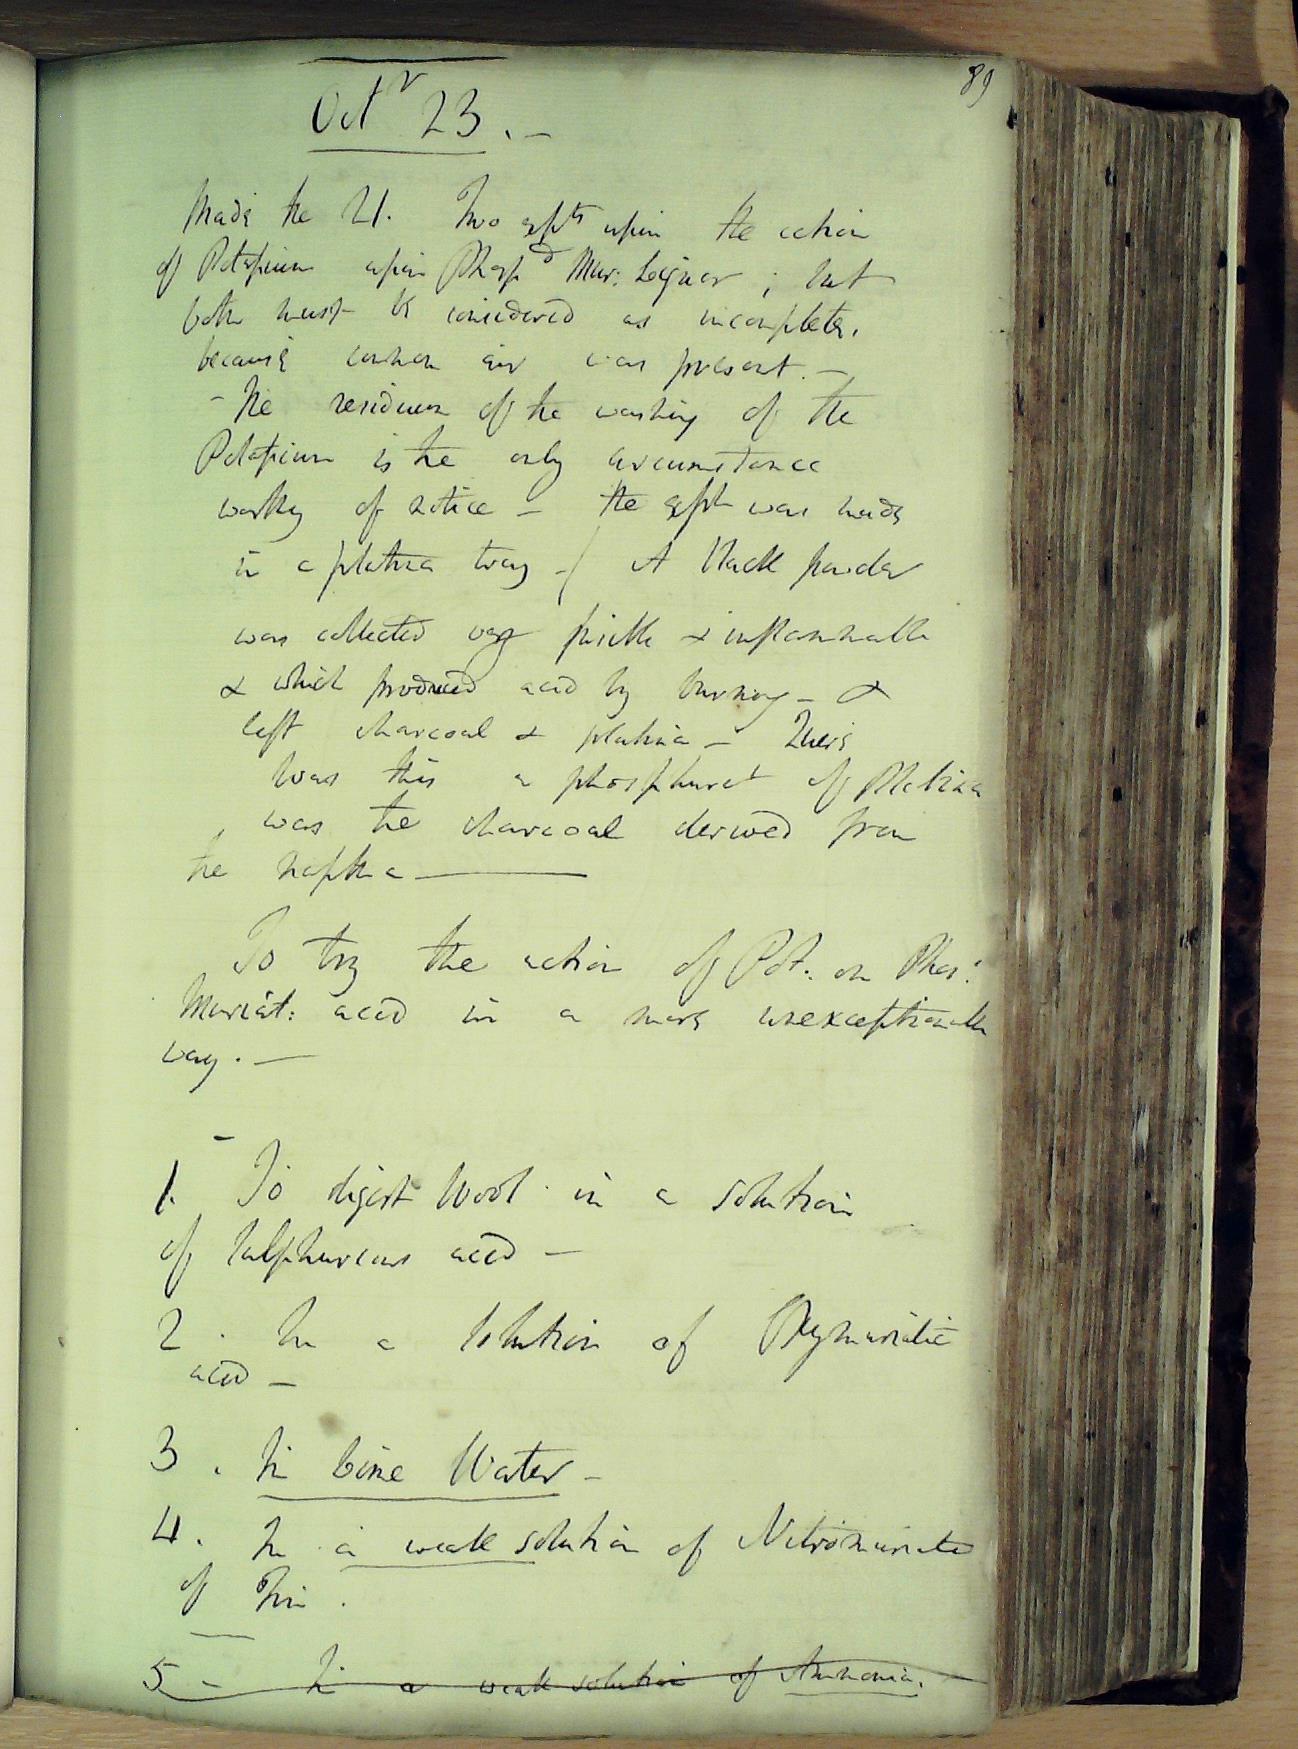 89
Octr 23. –
Made the 21. Two expts upon the action
of Potassium upon Phospd Mur: Liquor ; but
both must be considered as incomplete.
because common air was present. –
– The residuum of the washing of the
Potassium is the only circumstance
worthy of notice – The expt was made
in a platina tray –/ A black powder
was collected very friable & inflammable
& which produced acid by burning – &
left charcoal & platina –
was this a phosphuret of Platina
was the charcoal derived from
the naptha ———
To try the action of Pot: on Phos:
Muriat: acid in a more unexceptionable
way. —
1. To digest Wool in a solution
of Sulphureous acid –
2. In a solution of Oxymuriatic
acid –
3. In Lime Water –
4. In a weak solution of Nitromuriate
of Tin.
5 – In a weak solution of Ammonia.